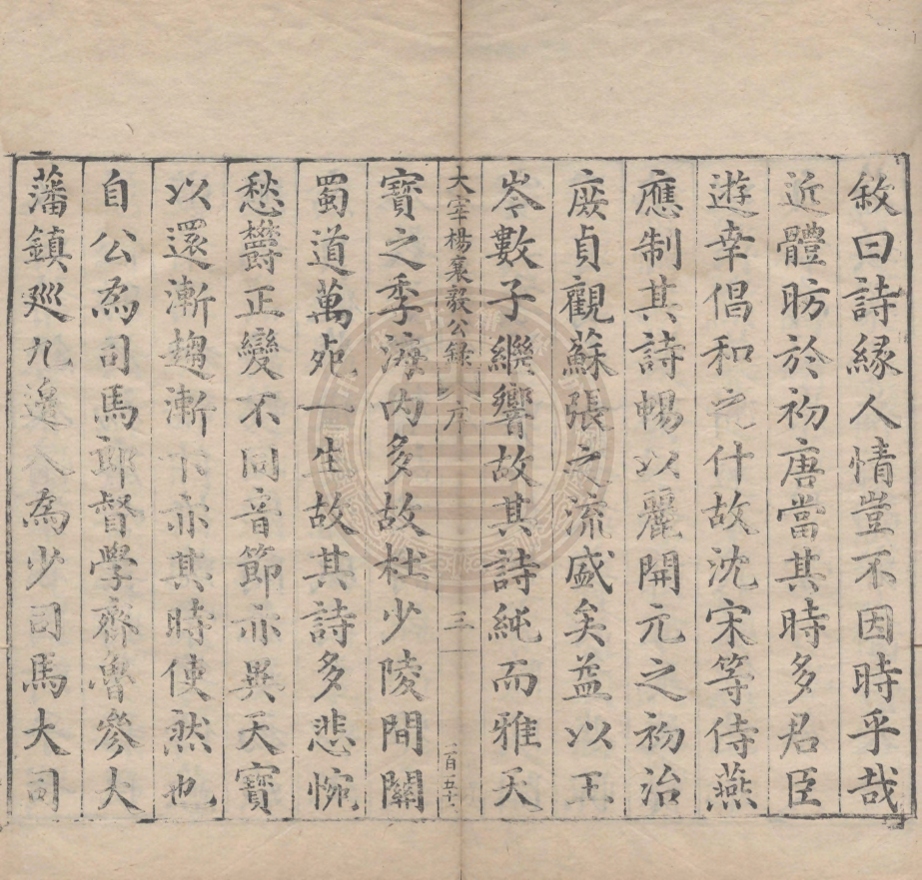 敘曰詩緣人情豈不因時乎哉
近體昉於初唐當其時多君臣
遊幸倡和之什故沈宋等侍燕
應制其詩暢以麗開元之初治
庶貞觀蘇張之流盛矣益以王
岑數子繼響故其詩純而雅天
大宰楊襄毅公錄 序 三 一百五十
寶之季海内多故杜少陵間關
蜀道萬死一生故其詩多悲惋
愁欝正變不同音節亦異天寶
以還漸趨漸下亦其時使然也
自公為司馬郎督學齊魯參大
藩鎮廵九邉入為少司馬大司